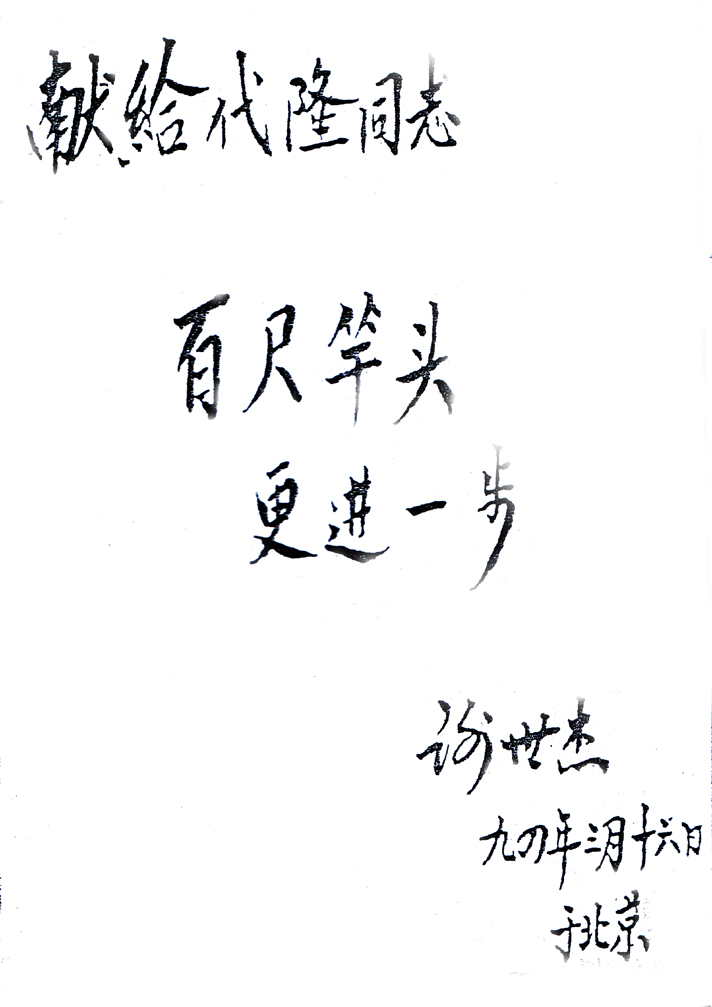 献给代隆同志
百尺竿头
更进一步
谢世杰
九四年三月十六日
于北京